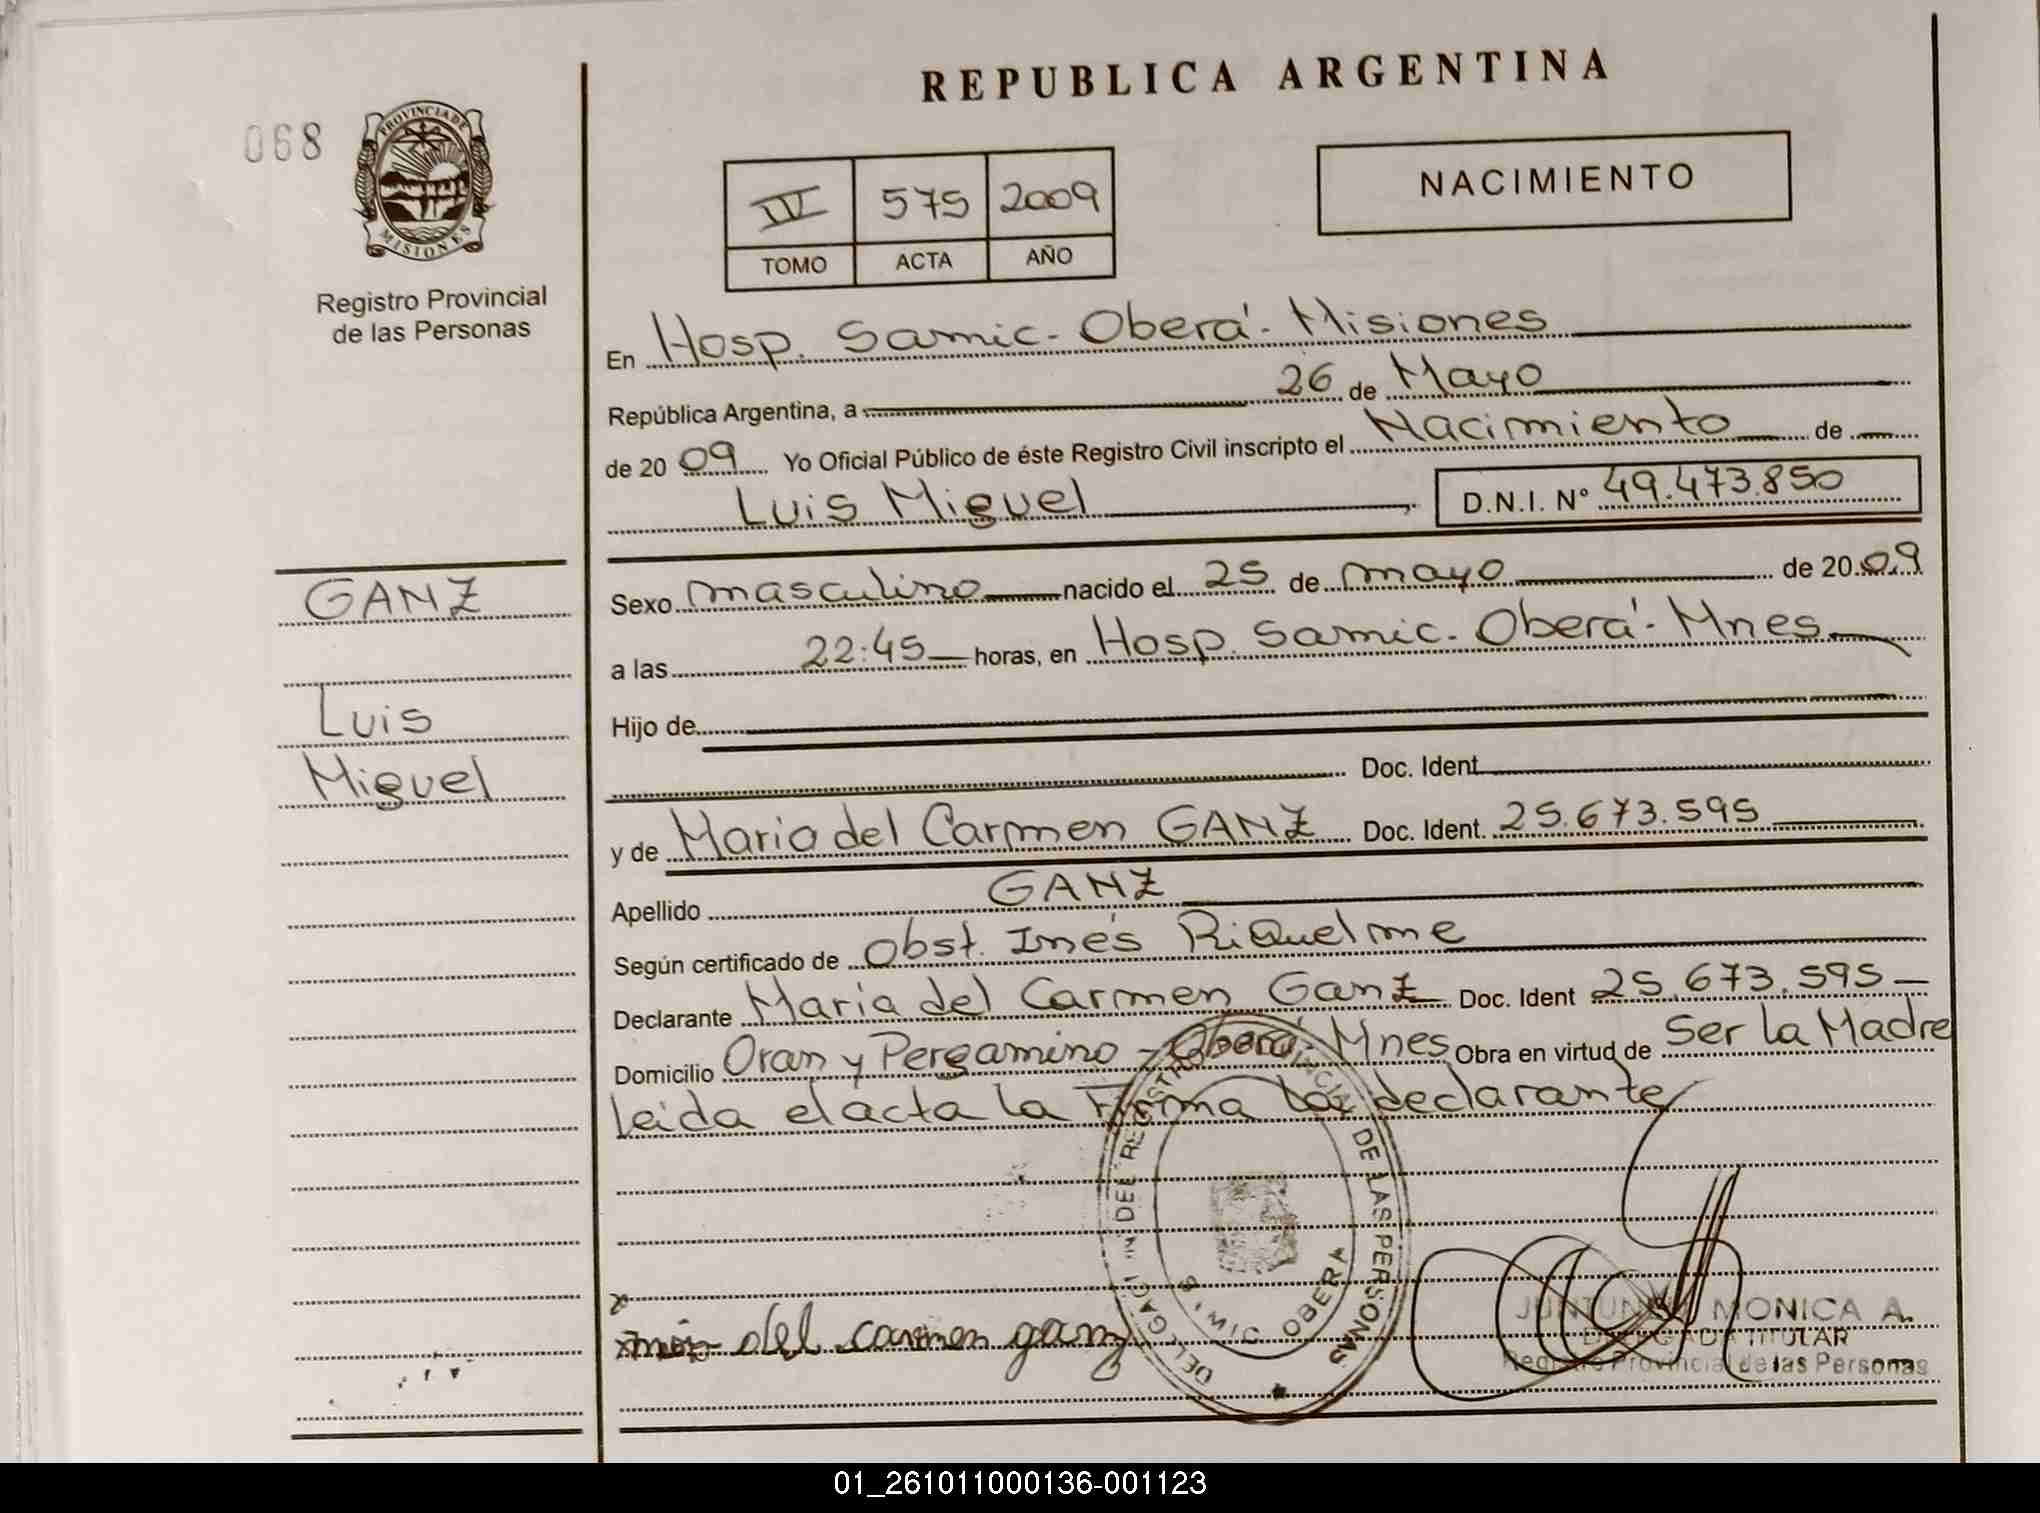 REPUBLICA ARGENTINA
068
PROVINCIA DE
MISIONES
Registro Provincial
de las Personas
IV 575 2009
TOMO ACTA AÑO
NACIMIENTO
En Hosp. Samic - Oberá - Misiones
República Argentina, a 26 de Mayo
de 2009 Yo Oficial Público de éste Registro Civil inscripto el Nacimiento de
Luis Miguel D.N.I. N° 49.473.850
GANZ
Luis
Miguel
Sexo masculino nacido el 25 de mayo de 2009
a las 22:45 horas, en Hosp. Samic - Oberá - Mnes
Hijo de
Doc. Ident
y de Maria del Carmen GANZ Doc. Ident. 25.673.595
Apellido GANZ
Según certificado de Obst. Inés Riquelme
Declarante María del Carmen Ganz Doc. Ident 25.673.595
Domicilio Oran y Pergamino - Oberá - Mnes Obra en virtud de Ser la Madre
leida el acta la Firma la declarante
del carmen ganz
OBERA
DE LAS PERSONAS
MONICA A.
TITULAR
Registro Provincial de las Personas
01_261011000136-001123